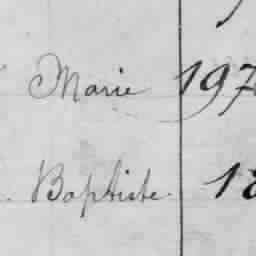 Marie 197
Baptiste 18